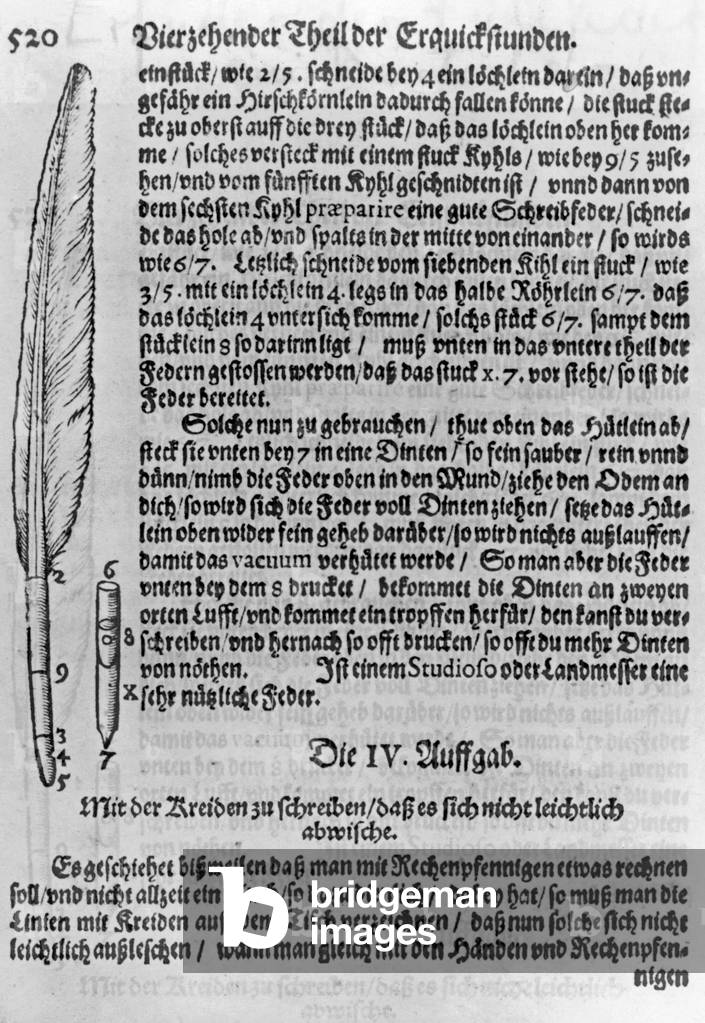 520 Vierzehender Theil der Erquickstunden.
einstück/ wie 2/5. schneide bey 4 ein löchlein darein/ daß vn-
gefähr ein Hirschkörnlein dadurch fallen könne/ die stuck ste-
cke zu oberst auff die drey stück/ daß das löchlein oben her kom-
me/ solches versteck mit einem stuck Kyhls/ wie bey 9/5 zuse-
hen/ vnd vom fünfften Kyhl geschnidten ist/ vnnd dann von
dem sechsten Kyhl præparire eine gute Schreibfeder/ schnei-
de das hole ab/ vnd spalts in der mitte von einander/ so wirds
wie 6/7. Letzlich schneide vom siebenden Kihl ein stuck/ wie
3/5. mit ein löchlein 4. legs in das halbe Röhrlein 6/7. daß
das löchlein 4 vntersich komme/ solchs stück 6/7. sampt dem
stücklein 8 so darinn ligt/ muß vnten in das vntere theil der
Federn gestossen werden/ daß das stuck x. 7. vor stehe/ so ist die
Feder bereitet.
Solche nun zu gebrauchen/ thue oben das Hütlein ab/
steck sie vnten bey 7 in eine Dinten/ so fein sauber/ rein vnnd
dünn/ nimb die Feder oben in den Mund/ ziehe den Odem an
dich/ so wird sich die Feder voll Dinten ziehen/ setze das Hüt-
lein oben wider fein geheb darüber/ so wird nichts außlauffen/
damit das vacuum verhütet werde/ So man aber die Feder
vnten bey dem 8 drucket/ bekommet die Dinten an zweyen
orten Lufft/ vnd kommet ein tropffen herfür/ den kanst du ver-
schreiben/ vnd hernach so offt drucken/ so offt du mehr Dinten
von nöthen. Ist einem Studioso oder Landmesser eine
sehr nützliche Feder.
2
9
3
4
5
6
8
x
7
Die IV. Auffgab.
Mit der Kreiden zu schreiben/ daß es sich nicht leichtlich
abwische.
Es geschiehet bißweilen daß man mit Rechenpfennigen etwas rechnen
soll/ vnd nicht allzeit ein hat/ so muß man die
Linien mit Kreiden auff den Tisch verzeichnen/ daß nun solche sich nicht
leichtlich außleschen/ wann man gleich mit den Händen vnd Rechenpfen-
nigen
b bridgeman
images